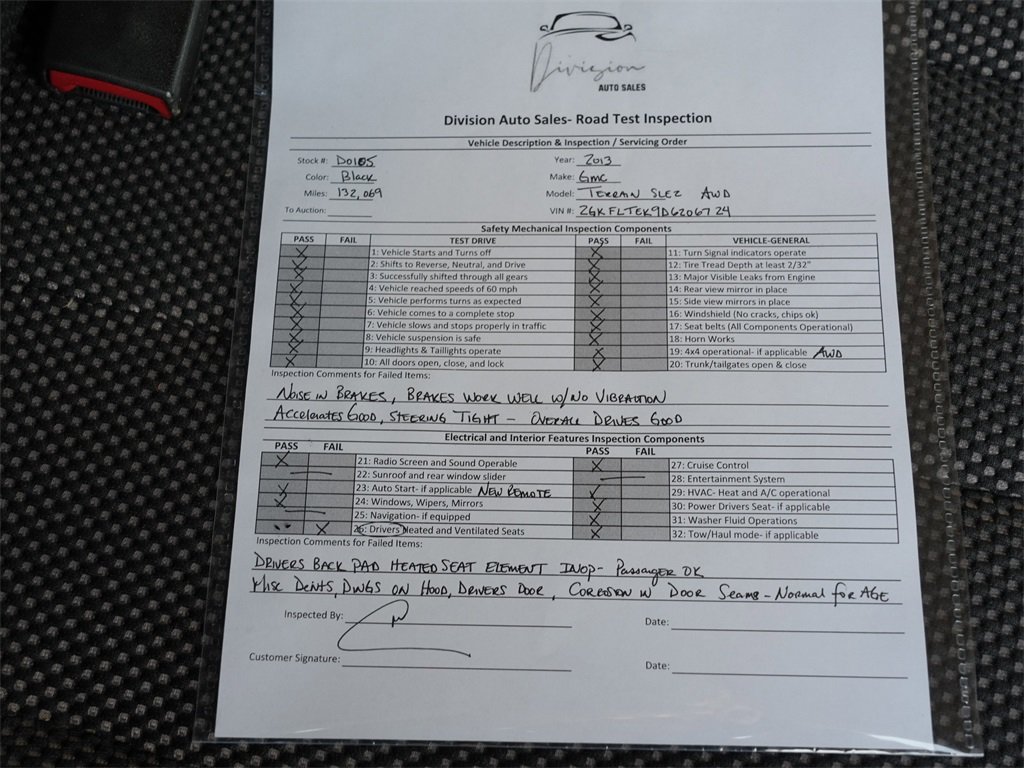 Division
AUTO SALES
Division Auto Sales- Road Test Inspection
Vehicle Description & Inspection / Servicing Order
Stock #: D0105 Year: 2013
Color: Black Make: GMC
Miles: 132,069 Model: TERRAIN SLE2 AWD
To Auction: VIN #: 2GKFLTEK9D6206724
Safety Mechanical Inspection Components
PASS FAIL TEST DRIVE PASS FAIL VEHICLE-GENERAL
1: Vehicle Starts and Turns off 11: Turn Signal indicators operate
2: Shifts to Reverse, Neutral, and Drive 12: Tire Tread Depth at least 2/32"
3: Successfully shifted through all gears 13: Major Visible Leaks from Engine
4: Vehicle reached speeds of 60 mph 14: Rear view mirror in place
5: Vehicle performs turns as expected 15: Side view mirrors in place
6: Vehicle comes to a complete stop 16: Windshield (No cracks, chips ok)
7: Vehicle slows and stops properly in traffic 17: Seat belts (All Components Operational)
8: Vehicle suspension is safe 18: Horn Works
9: Headlights & Taillights operate 19: 4x4 operational- if applicable AWD
10: All doors open, close, and lock 20: Trunk/tailgates open & close
Inspection Comments for Failed Items:
NOISE IN BRAKES, BRAKES WORK WELL W/NO VIBRATION
Accelerates GOOD, STEERING TIGHT - OVERALL DRIVES GOOD
Electrical and Interior Features Inspection Components
PASS FAIL PASS FAIL
21: Radio Screen and Sound Operable 27: Cruise Control
22: Sunroof and rear window slider 28: Entertainment System
23: Auto Start- if applicable NEW REMOTE 29: HVAC- Heat and A/C operational
24: Windows, Wipers, Mirrors 30: Power Drivers Seat- if applicable
25: Navigation- if equipped 31: Washer Fluid Operations
26: Drivers Heated and Ventilated Seats 32: Tow/Haul mode- if applicable
Inspection Comments for Failed Items:
DRIVERS BACK PAD HEATED SEAT ELEMENT INOP- Passanger OK
Misc Dents, Dings ON HOOD, DRIVERS DOOR, CORROSION IN DOOR Seams - Normal for AGE
Inspected By: Date:
Customer Signature: Date: